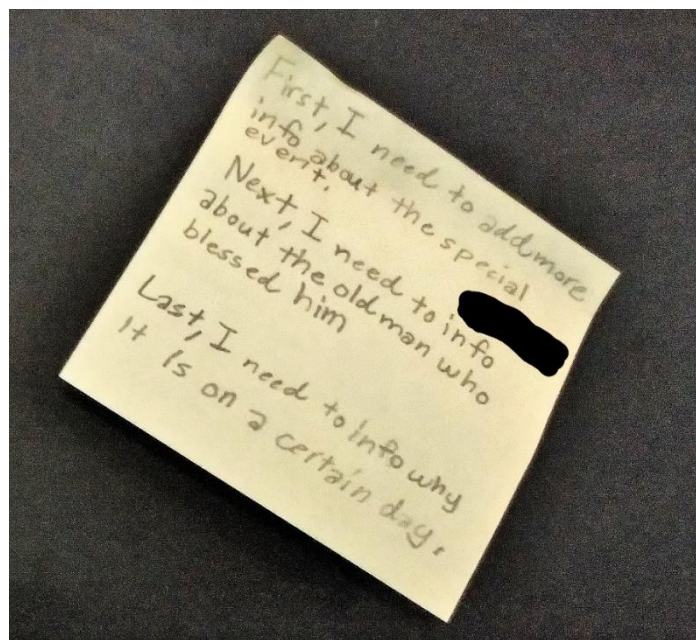 First, I need to add more
info about the special
event.
Next, I need to info
about the old man who
blessed him
Last, I need to info why
it is on a certain day.